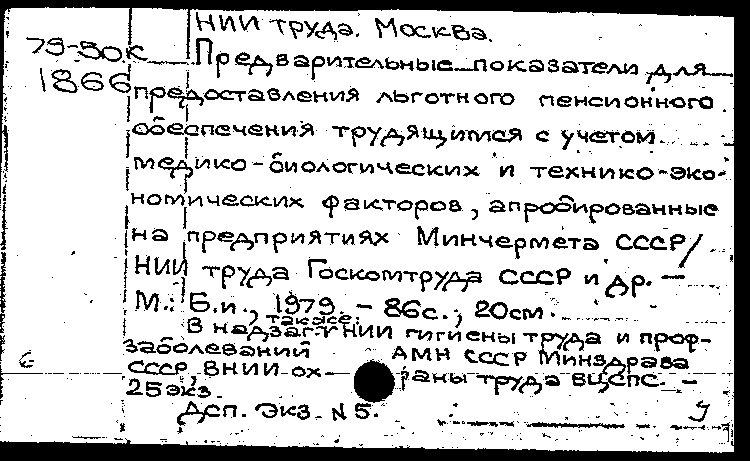 НИИ труда. Москва.
79-50к
1866
Предварительные показатели для
предоставления льготного пенсионного
обеспечения трудящимся с учетом
медико-биологических и технико-эко-
номических факторов, апробированные
на предприятиях Минчермета СССР/
НИИ труда Госкомтруда СССР и др. —
М.: Б.и., 1979. – 86с.; 20см.
В надзаг. также: НИИ гигиены труда и проф-
заболеваний АМН СССР Минздрава
СССР, ВНИИ ох- раны труда ВЦСПС. –
25экз.
Дсп. Экз. N 5.